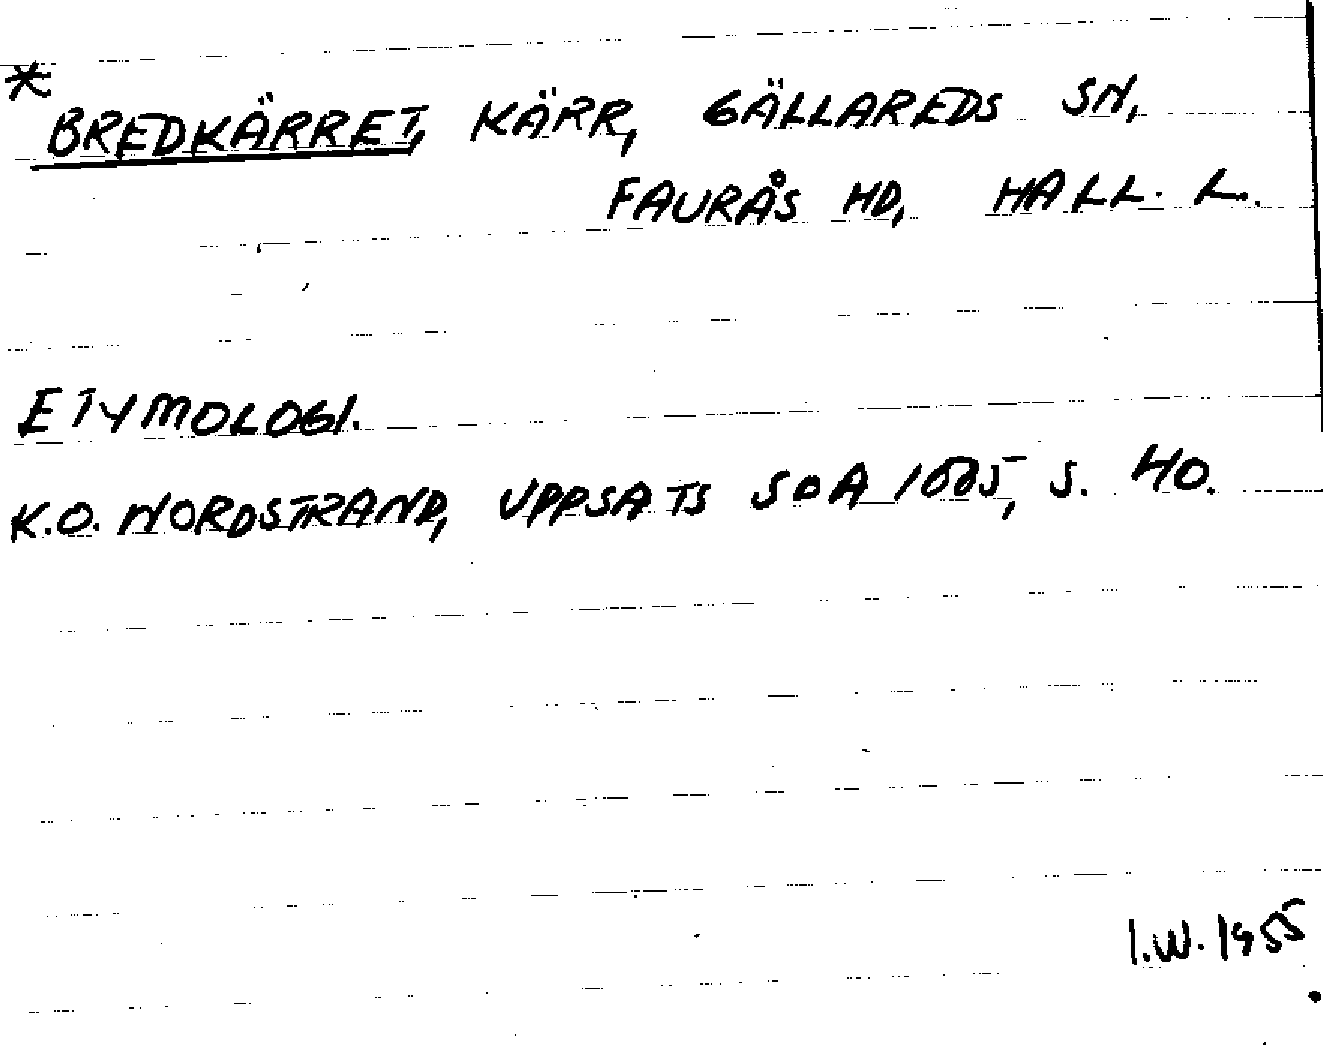 * BREDKÄRRET, KÄRR, GÄLLAREDS SN,
FAURÅS HD, HALL. L.
ETYMOLOGI.
K.O. NORDSTRAND, UPPSATS SOA 1005, S. 40.
I.W. 1955